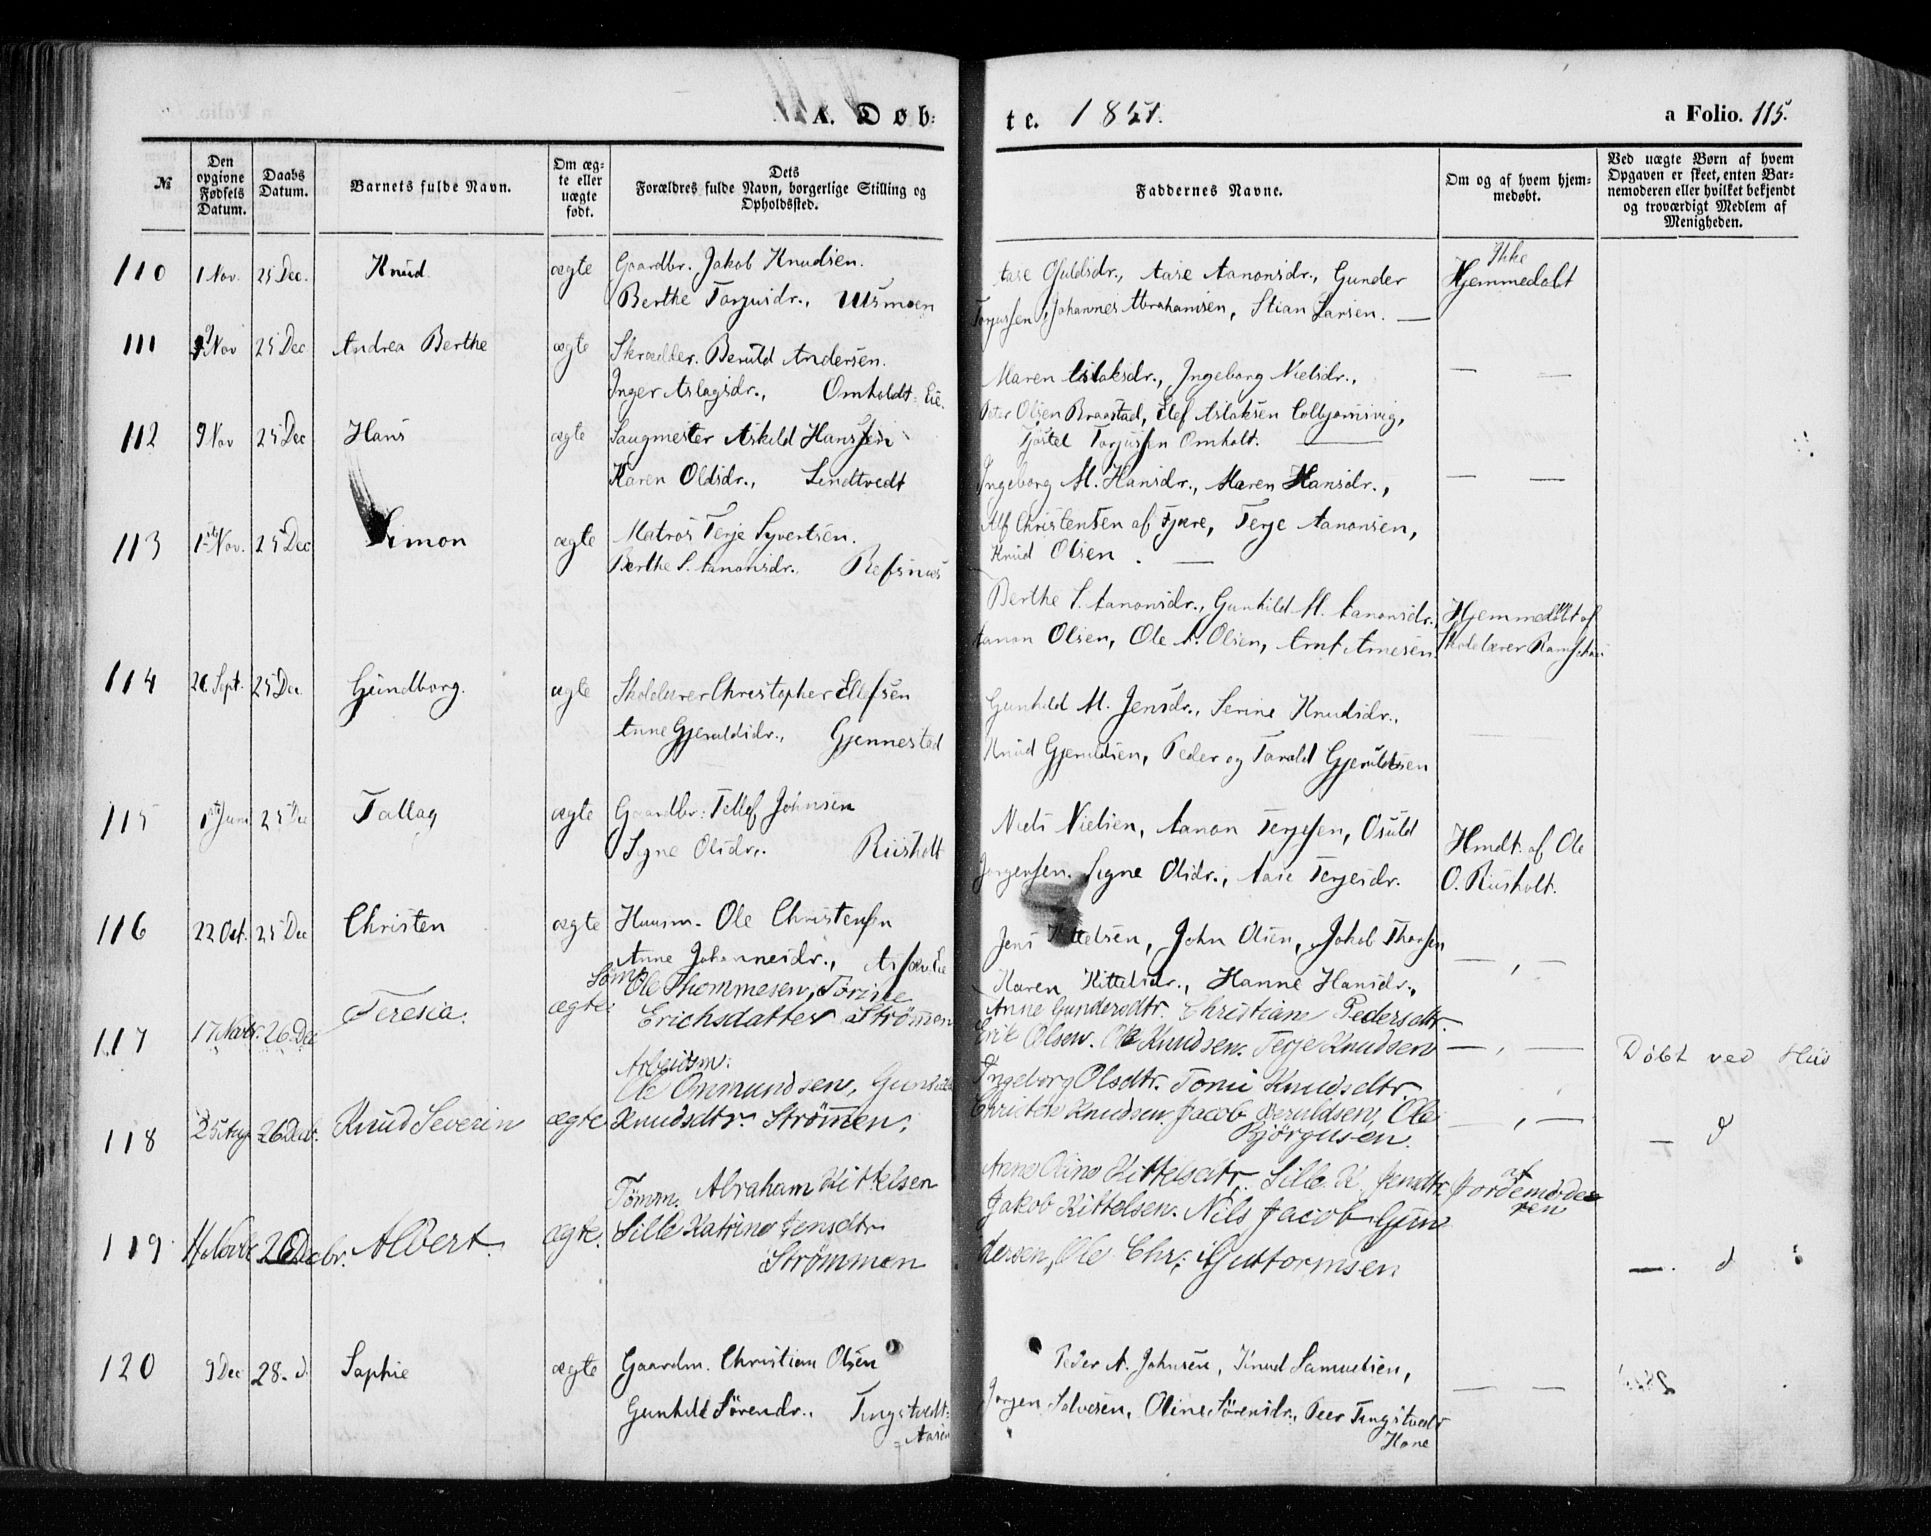 A. Døb-
te. 1851.
a Folio. 115.
№
Den opgivne Fødsels Datum.
Daabs Datum.
Barnets fulde Navn.
Om æg-te eller uægte født.
Dets Forældres fulde Navn, borgerlige Stilling og Opholdssted.
Faddernes Navne.
Om og af hvem hjem-medøbt.
Ved uægte Børn af hvem Opgaven er skeet, enten Bar-nemoderen eller hvilket bekjendt og troværdigt Medlem af Menigheden.
110 1 Nov. 25 Dec. Knud. ægte Gaardbr. Jakob Knudsen.
Berthe Torjusdr., Ulsmoen
Aase Osuldsdr., Aase Aanonsdr., Gunder
Torjussen, Johannes Abrahamsen, Stian Larsen. —
Ikke
Hjemmedøbt
111 9 Nov 25 Dec Andrea Berthe ægte Skrædder. Beruld Andersen.
Inger Aslagsdr., Omholdt-Eie.
Maren Aslaksdr., Ingeborg Nielsdr., — —
Peter Olsen Braastad, Elef Aslaksen Colbjørnsvig,
Tjøstel Torjussen Omholt. —
112 9 Nov 25 Dec Hans ægte Saugmester Askild Hanssen
Karen Olsdr., Lindtvedt
Ingeborg M. Hansdr., Maren Hansdr., — —
Alf Christensen af Fjære, Terje Aanonsen,
Knud Olsen. —
113 1ste Nov. 25 Dec Simon ægte Matros Terje Syvertsen.
Berthe S. Aanonsdr. Refsnæs
Berthe S. Aanonsdr., Gunhild M. Aanonsdr., Hjemmedøbt af
Aanon Olsen, Ole A. Olsen, Arnt Arnesen. Skolelærer
114 Sept. 25 Dec Gundborg. ægte Skolelærer Christopher Ellefsen
Anne Gjeruldsdr., Gjennestad
Gunhild M. Jensdr., Serine Knudsdr.,
Knud Gjeruldsen, Peder og Tarald Gjeruldsen
115 1ste Juni 25 Dec Tallag ægte Gaardbr. Tellef Johnsen
Signe Olsdr. Riisholt
Niels Nielsen, Aanon Terjesen, Osuld
Jørgensen. Signe Olsdr., Aase Terjesdr.
Hmdt. af Ole
O. Riisholt.
116 22 Oct. 25 Dec Christen ægte Huusm. Ole Christensen
Anne Johannesdr., Eie
Jens Kittelsen, John Olsen, Jakob Thorsen
Karen Kittelsdr., Hanne Hansdr., — , —
117 17 Novbr. 26 Dec Teresia. ægte Sømd. Ole Thommesen, Tørine
Erichsdatter Strømmen
Anne Gundersdtr. Christiane Pedersdtr.
Erik Olsen. Ole Knudsen. Terje Knudsen — , — Døbt ved Hus
118 25 Aug 26 Decbr. Knud Severin ægte Arbeidsm:
Ole Ommundsen, Gunhild
Knudsdtr. Strømmen.
Ingeborg Olsdtr. Tomi Knudsdtr
Christen Knudsen. Jacob Beruldsen, Ole
Bjørgusen. — , — — d
119 26 Decbr. Albert. ægte. Tømm. Abraham Kittelsen
Sille Katrine Jensdtr.
Strømmen
Anne Oline Kittelsdtr. Sille K. Jensdtr. af Jordemoderen
Jakob Kittelsen. Nils Jacob Gun
dersen, Ole Chr. Guttormsen — d
120 9 Dec 28. d. Sophie ægte Gaardm. Christian Olsen
Gunhild Sørensdr., Tingstvedt-
Aasen
Peder A. Johnsen, Knud Samuelsen,
Jørgen Salvesen, Oline Sørensdr., Peer Tingstvedt
Kone — —